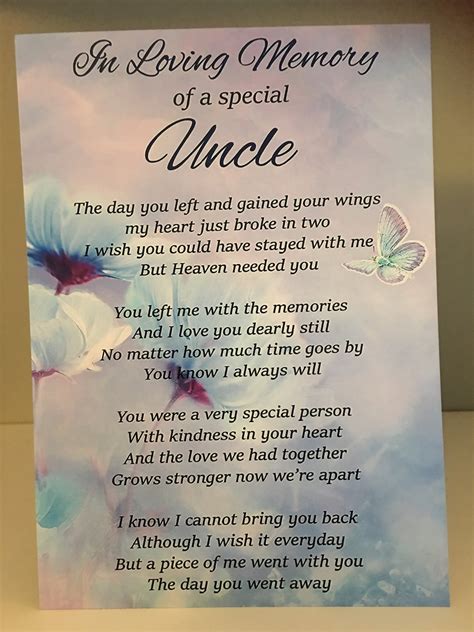 In Loving Memory
of a special
Uncle
The day you left and gained your wings
my heart just broke in two
I wish you could have stayed with me
But Heaven needed you
You left me with the memories
And I love you dearly still
No matter how much time goes by
You know I always will
You were a very special person
With kindness in your heart
And the love we had together
Grows stronger now we're apart
I know I cannot bring you back
Although I wish it everyday
But a piece of me went with you
The day you went away